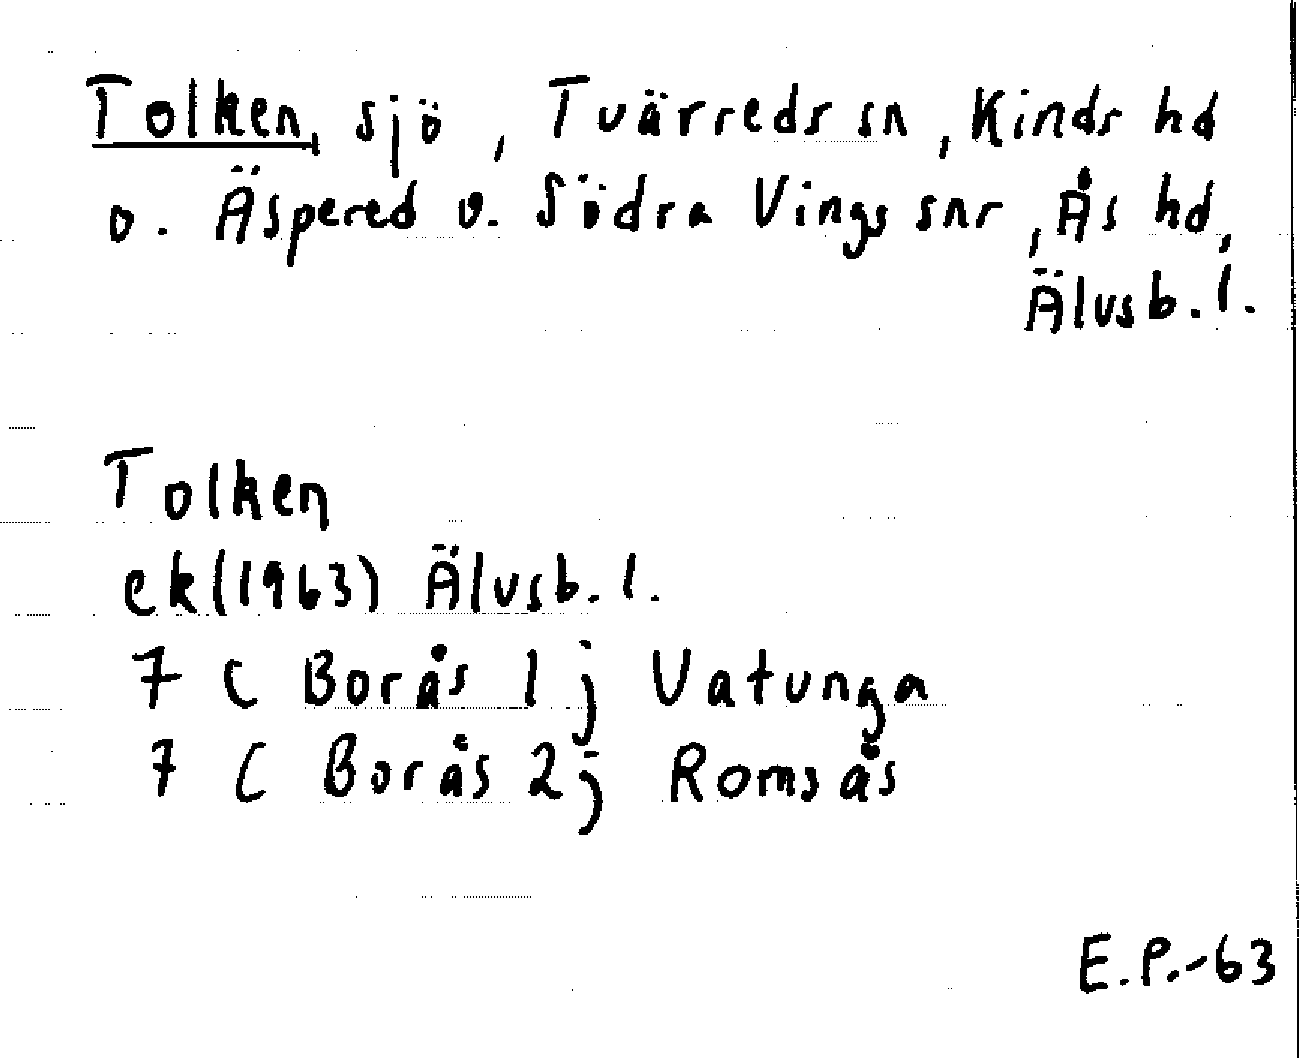 Tolken, sjö, Tvärreds sn, Kinds hd
o. Äspered o. Södra Vings snr, Ås hd,
Älvsb. l.
Tolken
ek (1963) Älvsb. l.
7 C Borås 1 j Vatunga
7 C Borås 2 j Romsås
E.P.-63